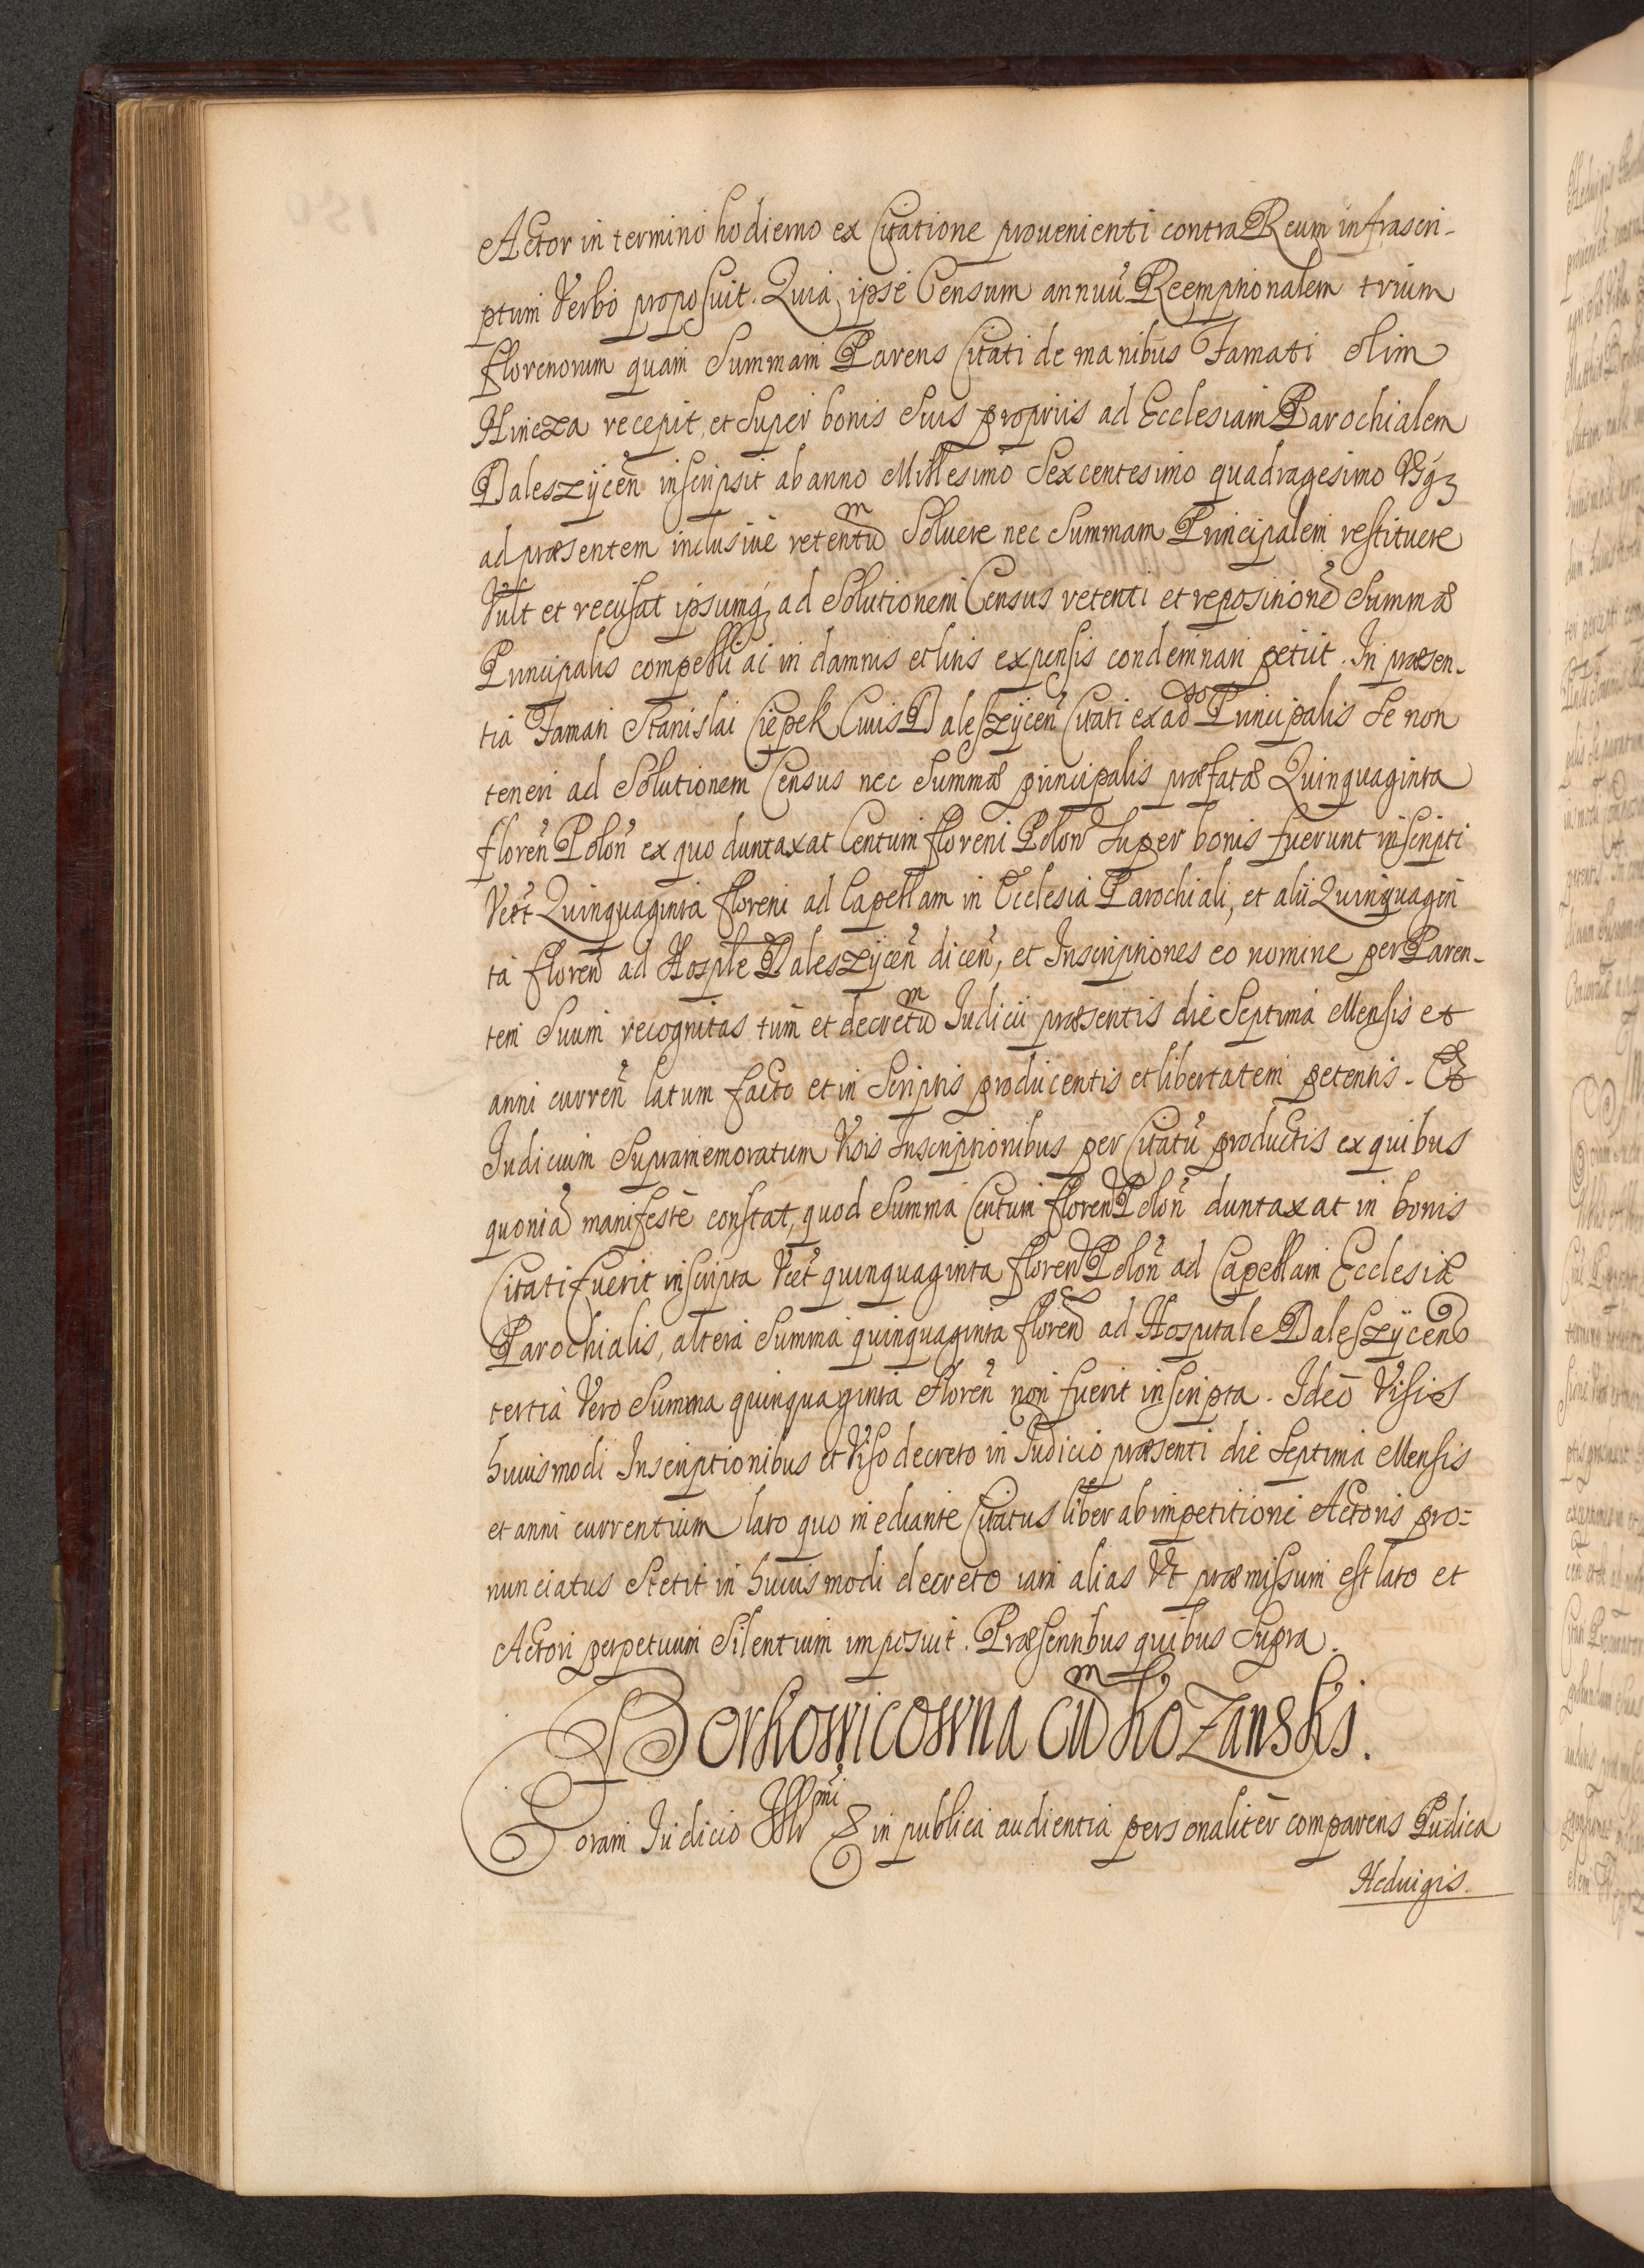 Actor in termino hodierno ex Citatione prouenienti contra Reum infrascri-
ptum Verbo proposuit. Quia ipse Censum annuũ Reemptionalem trium
florenorum quam Summam Parens Citati de manibus Famati olim
Hincza recepit, et Super bonis Suis proprijs ad Ecclesiam Parochialem
Daleszÿceñ inscripsit ab anno Millesimo Sexcentesimo quadragesimo Vsq3
ad præsentem inclusiuè retentũm Soluere nec Summam Principalem restituere
Vult et recusat ipsumq3 ad Solutionem Census retenti et repositionẽ Summæ
Principalis compelli ac in damnis et litis expensis condemnari petiit. In præsen-
tia Famati Stanislai Ciepek Ciuis Daleszÿceñ Citati ex aduerso Principalis Se non
teneri ad Solutionem Census nec Summæ principalis præfatæ Quinquaginta
floreñ Poloñ ex quo duntaxat Centum floreni Poloñ Super bonis fuerunt inscripti
Vcꝫt Quinquaginta floreni ad Capellam in Ecclesia Parochiali, et alij Quinquagin
ta floreñ ad Hosple Daleszÿceñ diceñ, et Inscriptiones eo nomine per Paren-
tem Suum recognitas tum et decretũm Iudicij præsentis die Septima Mensis et
anni curreñ latum facto et in Scriptis producentis et libertatem petentis. Et
Iudicium Supramemoratum Visis Inscriptionibus per Citatũ productis ex quibus
quoniã manifestè constat, quod Summa Centum floreñ Poloñ duntaxat in bonis
Citati fuerit inscripta Vcꝫt quinquaginta floreñ Poloñ ad Capellam Ecclesiæ
Parochialis, altera Summa quinquaginta floreñ ad Hospitale Daleszÿceñ
tertia Vero Summa quinquaginta floreñ non fuerit inscripta. Ideò Visis
huiusmodi Inscriptionibus et Viso decreto in Iudicio præsenti die Septima Mensis
et anni currentium lato quo mediante Citatus liber ab impetitione Actoris pro-
nunciatus Stetit in huiusmodi decreto iam alias Vt præmissum est lato et
Actori perpetuum Silentium imposuit. Præsentibus quibus Supra.
Borkowicowna cũm Kozanski.
Coram Iudicio Illr mi & in publica audientia personaliter comparens Pudica
Heduigis.